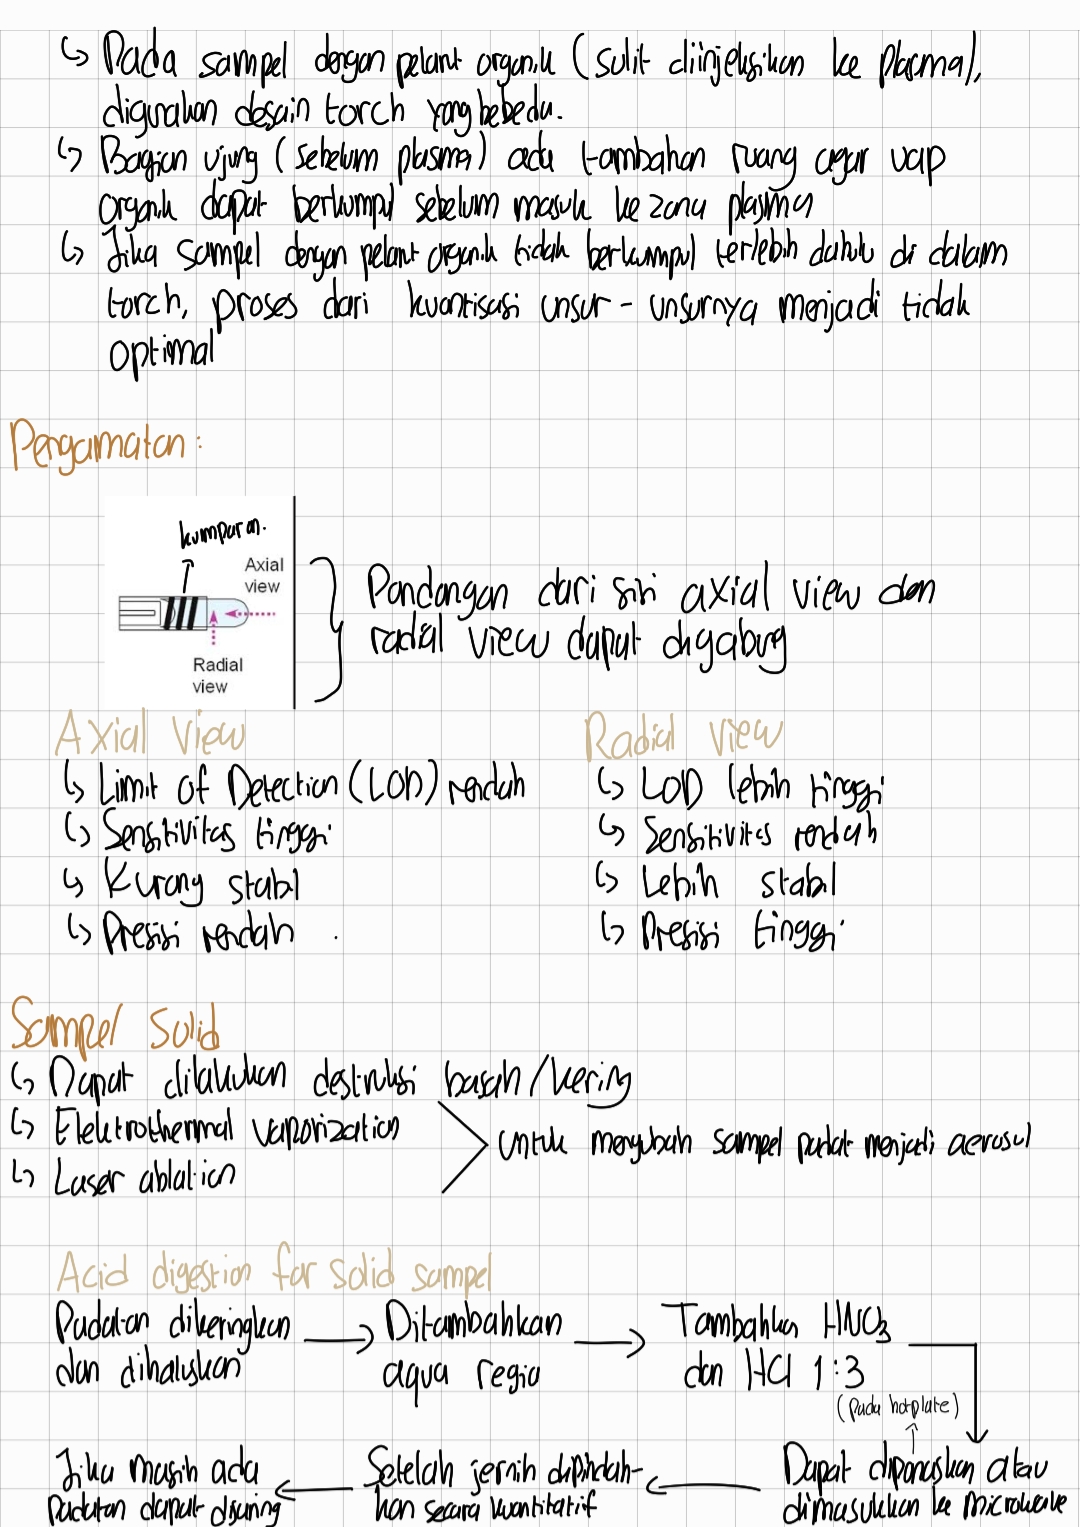 ↳ Pada sampel dengan pelarut organik (sulit diinjeksikan ke plasma),
digunakan desain torch yang bebeda.
↳ Bagian ujung (sebelum plasma) ada tambahan ruang agar uap
organik dapat berkumpul sebelum masuk ke zona plasma
↳ Jika sampel dengan pelarut organik tidak berkumpul terlebih dahulu di dalam
torch, proses dari kuantisasi unsur-unsurnya menjadi tidak
optimal
Pengamatan:
kumparan.
Axial
view
Radial
view
Pandangan dari sisi axial view dan
radial view dapat digabung
Axial View
↳ Limit of Detection (LOD) rendah
↳ Sensitivitas tinggi
↳ Kurang stabil
↳ Presisi rendah
Radial view
↳ LOD lebih tinggi
↳ Sensitivitas rendah
↳ Lebih stabil
↳ Presisi tinggi
Sampel Solid
↳ Dapat dilakukan destruksi basah/kering
↳ Elektrothermal vaporization
↳ Laser ablation
untuk mengubah sampel padat menjadi aerosol
Acid digestion for solid sampel
Padatan dikeringkan
dan dihaluskan
→ Ditambahkan
aqua regia
→ Tambahkan HNO3
dan HCl 1:3
(pada hotplate)
Dapat dipanaskan atau
dimasukkan ke microwave
← Setelah jernih dipindah-
kan secara kuantitatif
← Jika masih ada
padatan dapat disaring